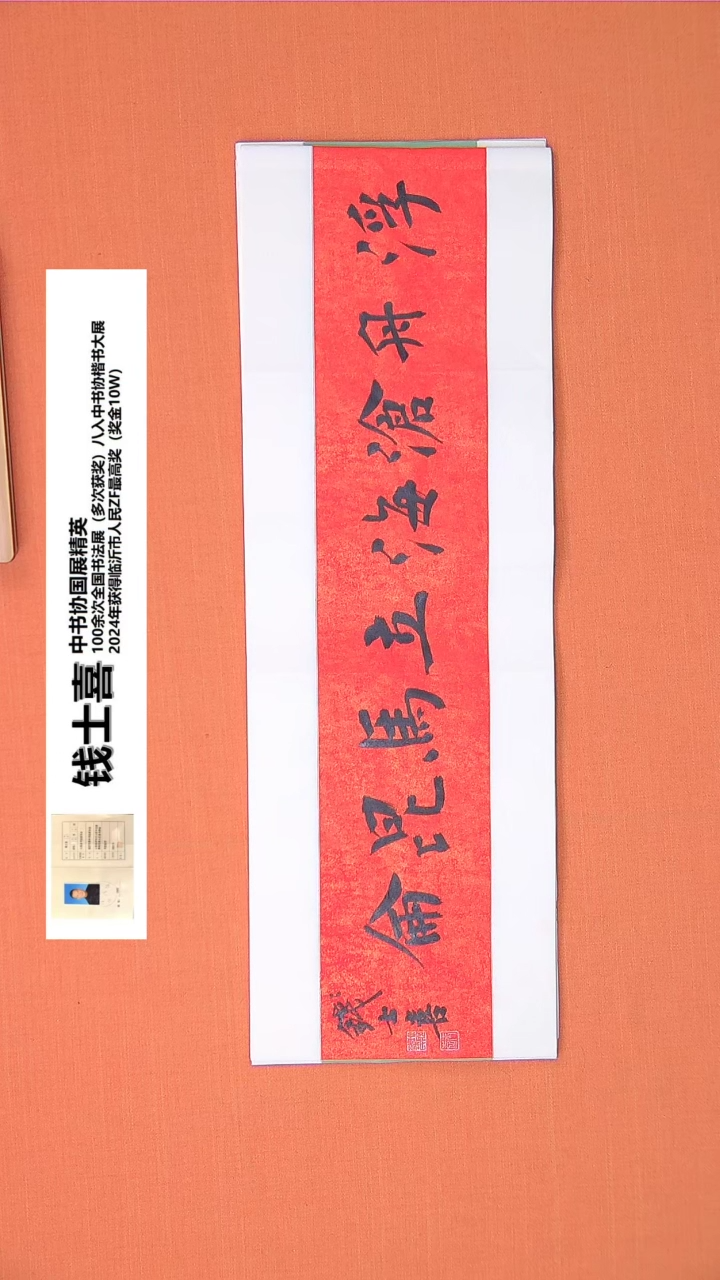 钱士喜
中书协国展精英
100余次全国书法展（多次获奖）八入中书协楷书大展
2024年获得临沂市人民ZF最高奖（奖金10W）
浮舟滄海立馬昆侖
錢士喜